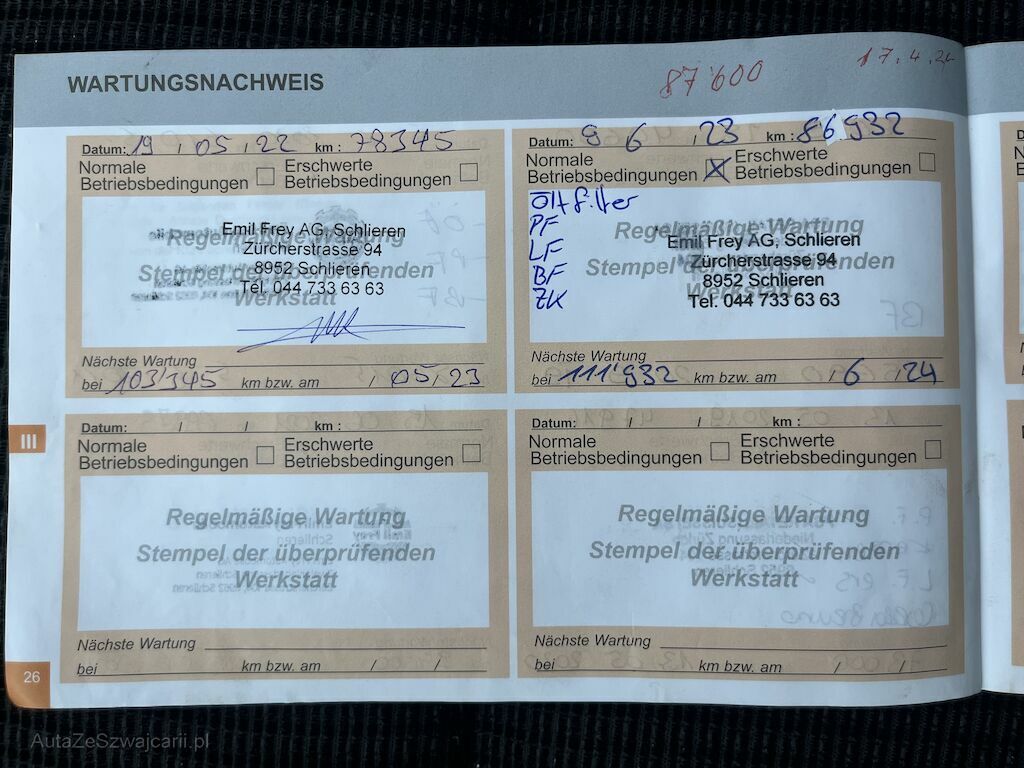 WARTUNGSNACHWEIS
87'600
17.4.24
Datum: 19 / 05 / 22 km : 78345
Normale Betriebsbedingungen
Erschwerte Betriebsbedingungen
Regelmäßige Wartung
Stempel der überprüfenden
Werkstatt
Emil Frey AG, Schlieren
Zürcherstrasse 94
8952 Schlieren
Tel. 044 733 63 63
Nächste Wartung
bei 103'345 km bzw. am / 05 / 23
Datum: 9 / 6 / 23 km : 86932
Normale Betriebsbedingungen
Erschwerte Betriebsbedingungen
Öl+filter
PF
LF
BF
ZK
Regelmäßige Wartung
Stempel der überprüfenden
Werkstatt
Emil Frey AG, Schlieren
Zürcherstrasse 94
8952 Schlieren
Tel. 044 733 63 63
Nächste Wartung
bei 111'932 km bzw. am / 6 / 24
III
Datum: / / km :
Normale Betriebsbedingungen
Erschwerte Betriebsbedingungen
Regelmäßige Wartung
Stempel der überprüfenden
Werkstatt
Nächste Wartung
bei km bzw. am / /
Datum: / / km :
Normale Betriebsbedingungen
Erschwerte Betriebsbedingungen
Regelmäßige Wartung
Stempel der überprüfenden
Werkstatt
Nächste Wartung
bei km bzw. am / /
26
AutaZeSzwajcarii.pl